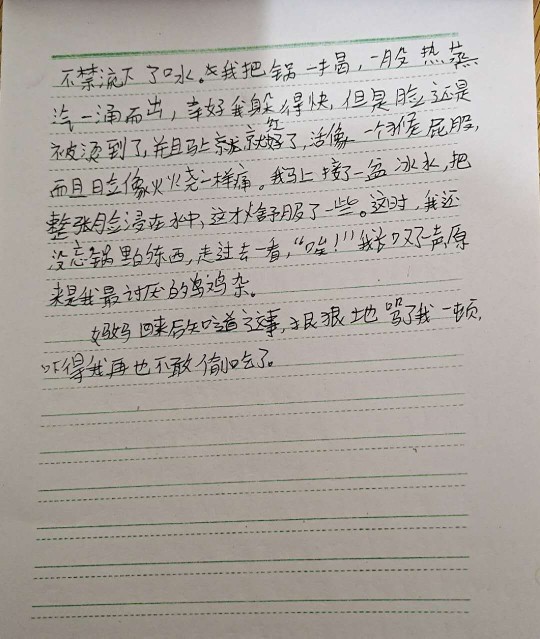 不禁流下了口水。我把锅一揭，一股热蒸
汽一涌而出，幸好我躲得快，但是脸还是
被烫到了，并且马上就红了，活像一个猴屁股，
而且脸像火烧一样痛。我马上接了一盆冰水，把
整张脸浸在水中，这才舒服了一些。这时，我还
没忘锅里的东西，走过去一看，“哇！”我长叹了声，原
来是我最讨厌的鸡杂。
妈妈回来后知道了这事，狠狠地骂了我一顿，
吓得我再也不敢偷吃了。